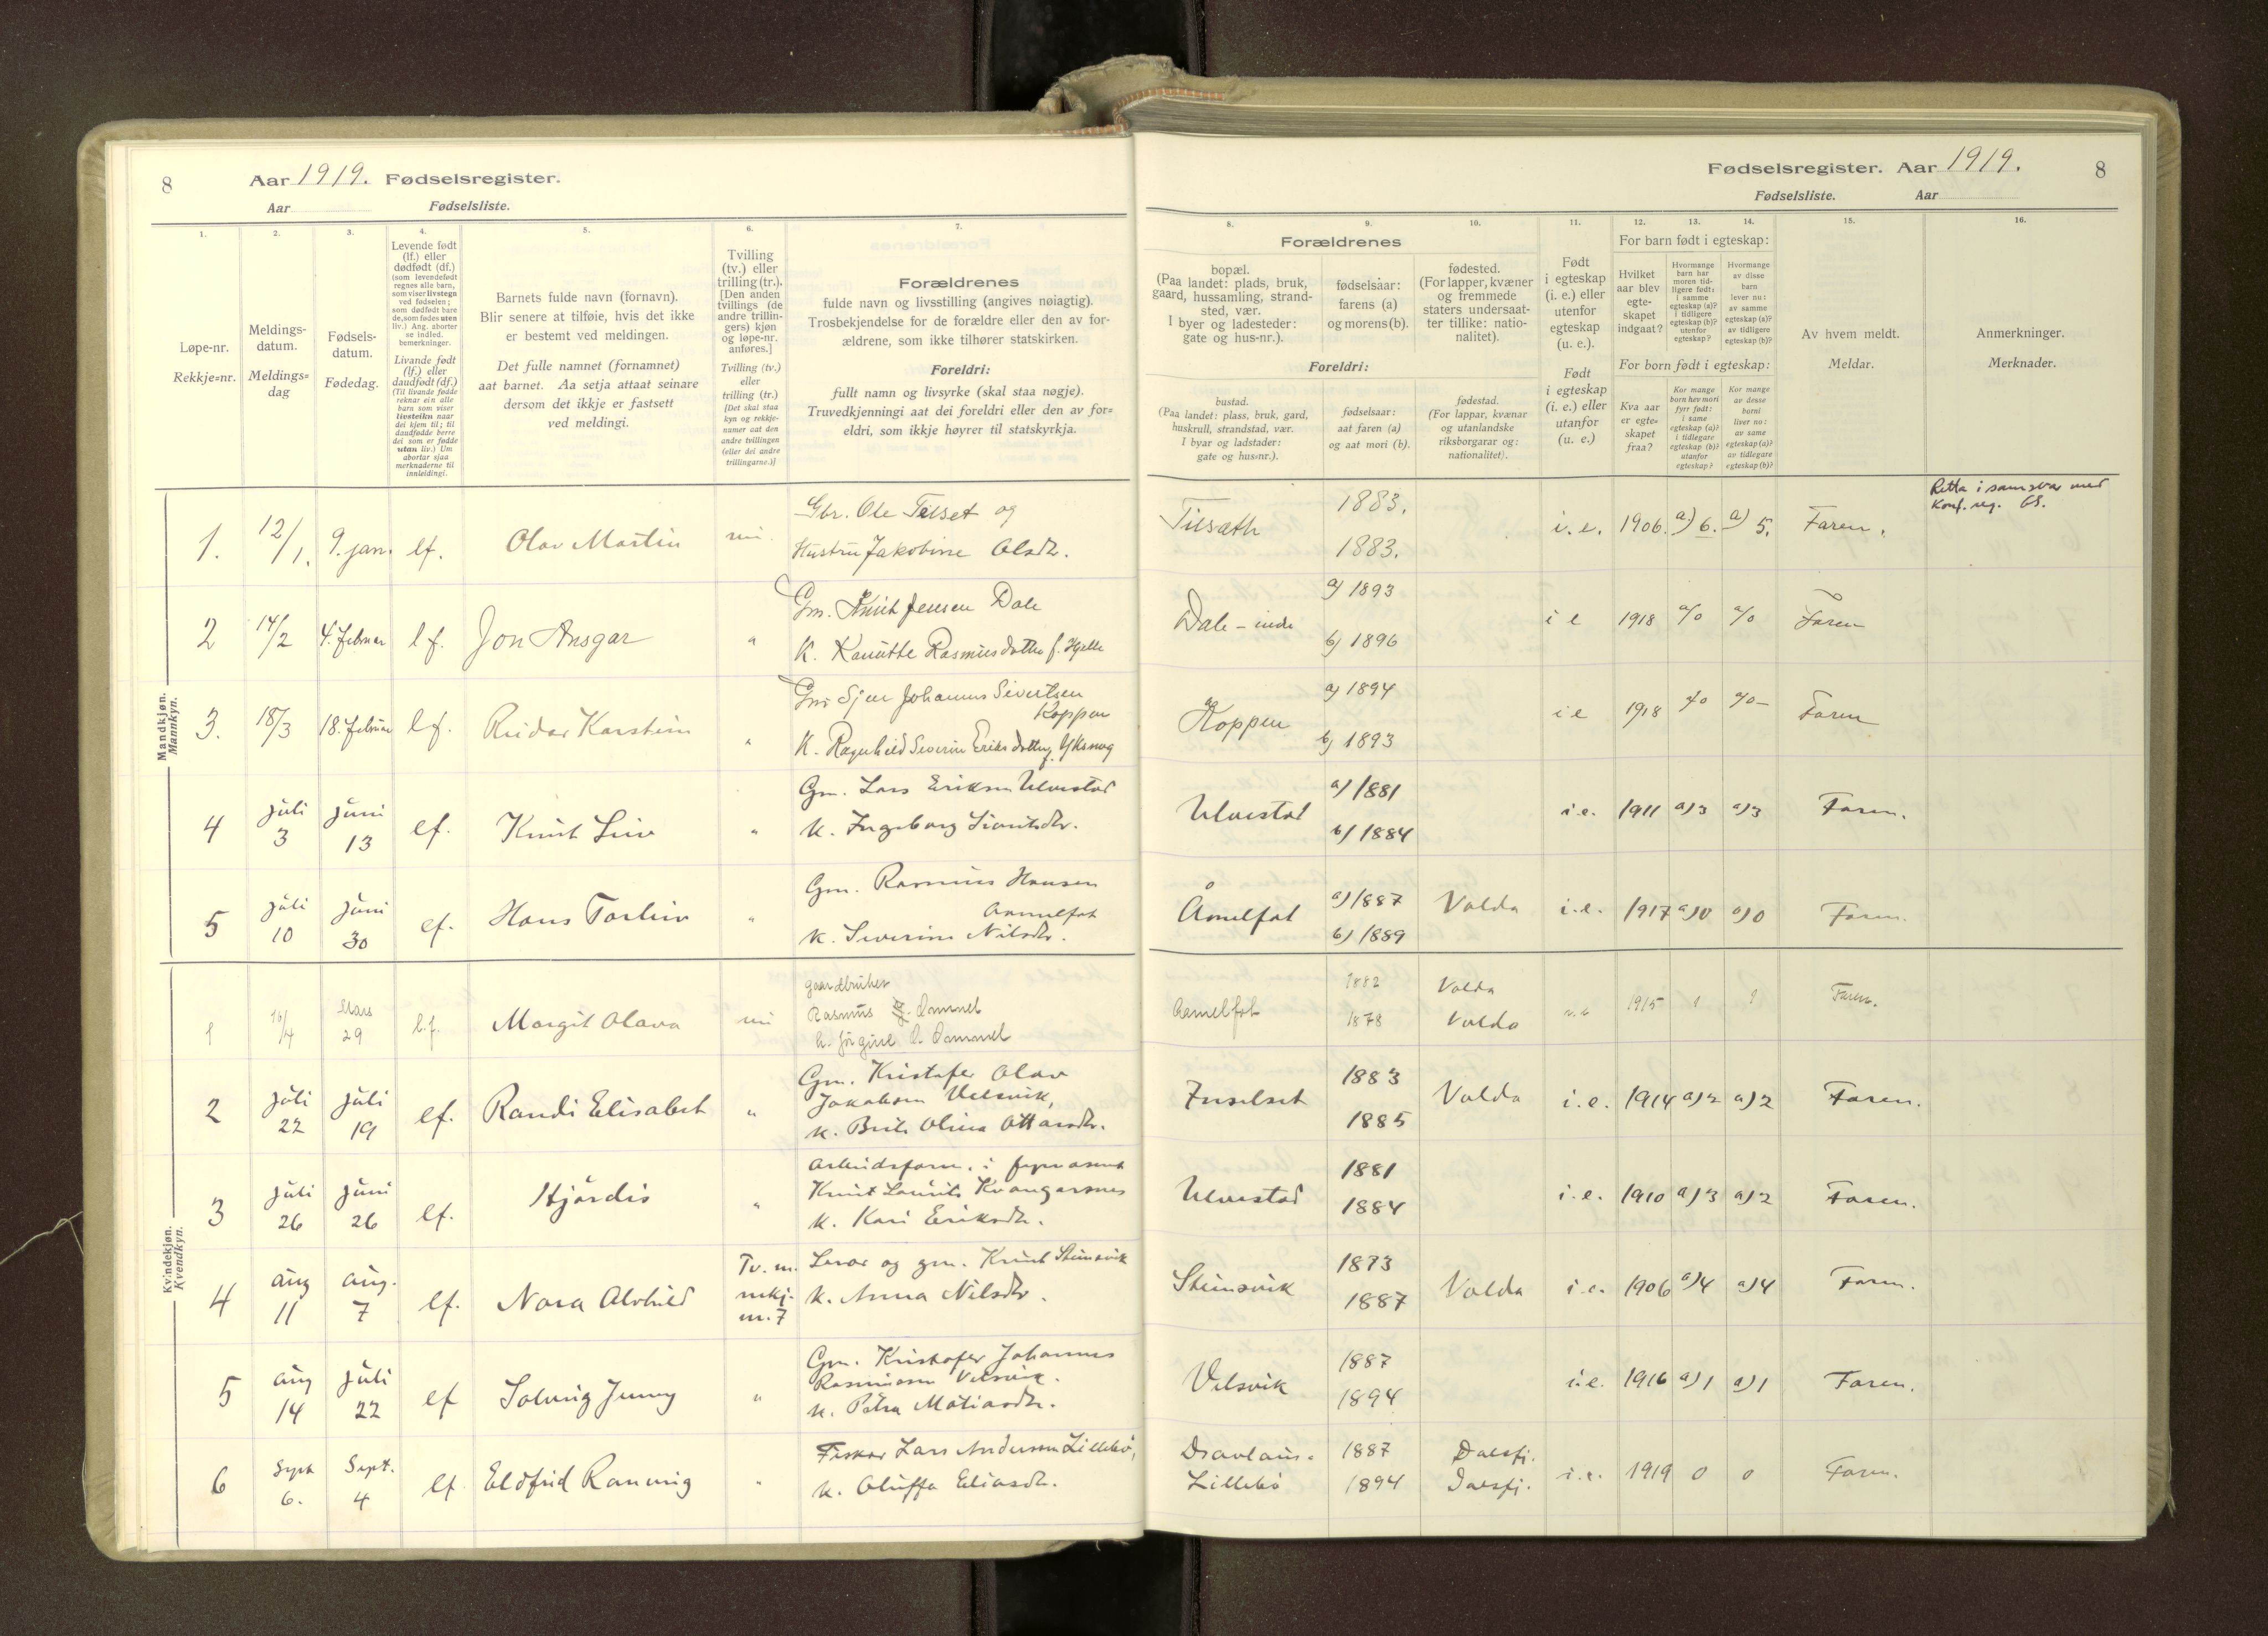 8 Aar 1919. Fødselsregister.
Aar Fødselsliste.
Fødselsregister. Aar 1919. 8
Fødselsliste. Aar
1. 2. 3. 4. 5. 6. 7. 8. 9. 10. 11. 12. 13. 14. 15. 16.
Løpe-nr.
Rekkje=nr.
Meldings-
datum.
Meldings=
dag
Fødsels-
datum.
Fødedag.
Levende født
(lf.) eller
dødfødt (df.)
(som levendefødt
regnes alle barn,
som viser livstegn
ved fødselen;
som dødfødt bare
de, som fødes uten
liv.) Ang. aborter
se indled.
bemerkninger.
Livande født
(lf.) eller
daudfødt (df.)
(Til livande fødde
reknar ein alle
barn som viser
livsteikn naar
dei kjem til; til
daudfødde berre
dei som er fødde
utan liv.) Um
abortar sjaa
merknaderne til
innleidingi.
Barnets fulde navn (fornavn).
Blir senere at tilføie, hvis det ikke
er bestemt ved meldingen.
Det fulle namnet (fornamnet)
aat barnet. Aa setja attaat seinare
dersom det ikkje er fastsett
ved meldingi.
Tvilling
(tv.) eller
trilling (tr.).
[Den anden
tvillings (de
andre trillin-
gers) kjøn
og løpe-nr.
anføres.]
Tvilling (tv.)
eller
trilling (tr.)
[Det skal staa
kyn og rekkje-
numer aat den
andre tvillingen
(eller dei andre
trillingarne.)]
Forældrenes
fulde navn og livsstilling (angives nøiagtig).
Trosbekjendelse for de forældre eller den av for-
ældrene, som ikke tilhører statskirken.
Foreldri:
fullt namn og livsyrke (skal staa nøgje).
Truvedkjenningi aat dei foreldri eller den av for=
eldri, som ikkje høyrer til statskyrkja.
Forældrenes
bopæl.
(Paa landet: plads, bruk,
gaard, hussamling, strand-
sted, vær.
I byer og ladesteder:
gate og hus-nr.).
fødselsaar:
farens (a)
og morens (b).
fødested.
(For lapper, kvæner
og fremmede
staters undersaat-
ter tillike: natio-
nalitet).
Foreldri:
bustad.
(Paa landet: plass, bruk, gard,
huskrull, strandstad, vær.
I byar og ladstader:
gate og hus=nr.).
fødselsaar:
aat faren (a)
og aat mori (b).
fødestad.
(For lappar, kvænar
og utanlandske
riksborgarar og:
nationalitet).
Født
i egteskap
(i. e.) eller
utenfor
egteskap
(u. e.).
Født
i egteskap
(i. e.) eller
utanfor
egteskap
(u. e.)
For barn født i egteskap:
Hvilket
aar blev
egte-
skapet
indgaat?
Hvormange
barn har
moren tid-
ligere født:
i samme
egteskap (a)?
i tidligere
egteskap (b)?
utenfor
egteskap?
Hvormange
av disse
barn
lever nu:
av samme
egteskap (a)?
av tidligere
egteskap (b)?
For born født i egteskap:
Kva aar
er egte-
skapet
fraa?
Kor mange
born hev mori
fyrr født:
i same
egteskap (a)?
i tidlegare
egteskap (b)?
utanfor
egteskap?
Kor mange
av desse
borni
liver no:
av same
egteskap (a)?
av tidlegare
egteskap (b)?
Av hvem meldt.
Meldar.
Anmerkninger.
Merknader.
Mandkjøn.
Mannkyn.
1. 12/1. 9. jan. lf. Olav Martin nei. Gbr. Ole Tilset og
Hustru Jakobine Olsdr.
Tilsæth 1883. 1883. i. e. 1906. a) 6. a) 5. Faren.
Retta i samsvar med
Konf. reg. GS.
2 14/2 4. februar lf. Jon Ansgar " Gm. Knut Jensen Dale
K. Kanutte Rasmusdatter f. Hjelle
Dale – indre a) 1893 b) 1896 i e 1918 a/0 a/0 Faren
3. 18/3 18. februar lf. Reidar Karstein " Gm Sjur Johannes Sivertsen
Koppen
K. Ragnhild Severin Eriksdatter f. Yksnøy
Koppen a) 1894 b) 1893 i e 1918 a/0 a/0 – Faren
4 juli 3 juni 13 lf. Knut Liv " Gm. Lars Eriksen Ulvestad
K. Ingeborg Sivertsdr.
Ulvestad a) 1881 b) 1884 i. e. 1911 a) 3 a) 3 Faren.
5 juli 10 juni 30 lf. Hans Torleiv " Gm. Rasmus Hansen
Aamelfot
K. Severine Nilsdr.
Åmelfot a) 1887 b) 1889 Volda i. e. 1917 a) 0 a) 0 Faren.
Kvindekjøn.
Kvendkyn.
1 16/4 Mars 29 l.f. Margit Olava nei gaardbruker
Rasmus J. Aammel
h. Jørgine O. Aammel
Aamelfot 1882 1878 Volda Volda i. e 1915 1 1 Faren.
2 juli 22 juli 19 lf. Randi Elisabet " Gm. Kristofer Olav
Jakobsen Velsvik,
K. Brite Oline Ottarsdr.
Inselset 1883 1885 Volda i. e. 1914 a) 2 a) 2 Faren.
3 juli 26 juni 26 lf. Hjørdis " Arbeidsform. i fyrvæsenet
Knut Laurits Kvangarsnes
K. Kari Eriksdr.
Ulvestad 1881 1884 i. e. 1910 a) 3 a) 2 Faren.
4 aug 11 aug. 7 lf. Nora Alvhild Tv. m.
mkj.
nr. 7
Lærar og gm. Knut Steinsvik
K. Anna Nilsdr.
Steinsvik 1873 1887 Volda i. e. 1906 a) 4 a) 4 Faren.
5 aug 14 juli 22 lf Solveig Jenny " Gm. Kristofer Johannes
Rasmussen Velsvik.
K. Petra Matiasdr.
Velsvik 1887 1894 i. e. 1916 a) 1 a) 1 Faren.
6 Sept 6. Sept. 4 lf. Eldfrid Ranveig " Fiskar Lars Andersen Lillebø,
K. Oluffa Eliasdr.
Dravlaus-
Lillebø 1887 1894 Dalsfj. Dalsfj. i. e. 1919 0 0 Faren.